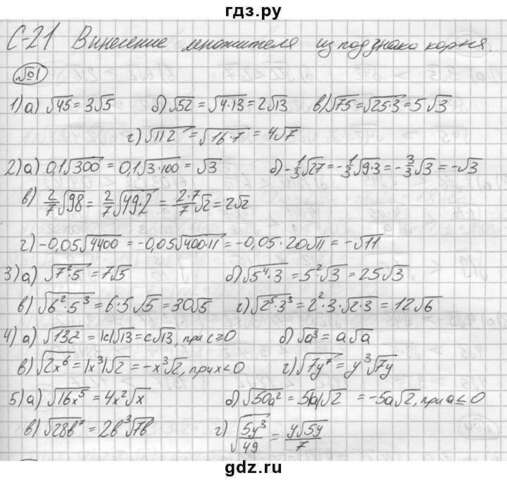 гдз.ру
С-21 Вынесение множителя из под знака корня.
№1
1) а) √45 = 3√5 б) √52 = √4·13 = 2√13 в) √75 = √25·3 = 5√3
г) √112 = √16·7 = 4√7
2) а) 0,1√300 = 0,1√3·100 = √3 б) -1/3√27 = -1/3√9·3 = -3/3√3 = -√3
в) 2/7√98 = 2/7√49·2 = 2·7/7√2 = 2√2
г) -0,05√4400 = -0,05√400·11 = -0,05·20√11 = -√11
3) а) √7²·5 = 7√5 б) √5⁴·3 = 5²√3 = 25√3
в) √6²·5³ = 6·5√5 = 30√5 г) √2⁵·3³ = 2²·3·√2·3 = 12√6
4) а) √13c² = |c|√13 = c√13, при c≥0 б) √a³ = a√a
в) √2x⁶ = |x³|√2 = -x³√2, при x<0 г) √7y⁷ = y³√7y
5) а) √16x⁵ = 4x²√x б) √50a² = 5|a|√2 = -5a√2, при a≤0
в) √28b⁷ = 2b³√7b г) √5y³/49 = y√5y/7
gdz.ru